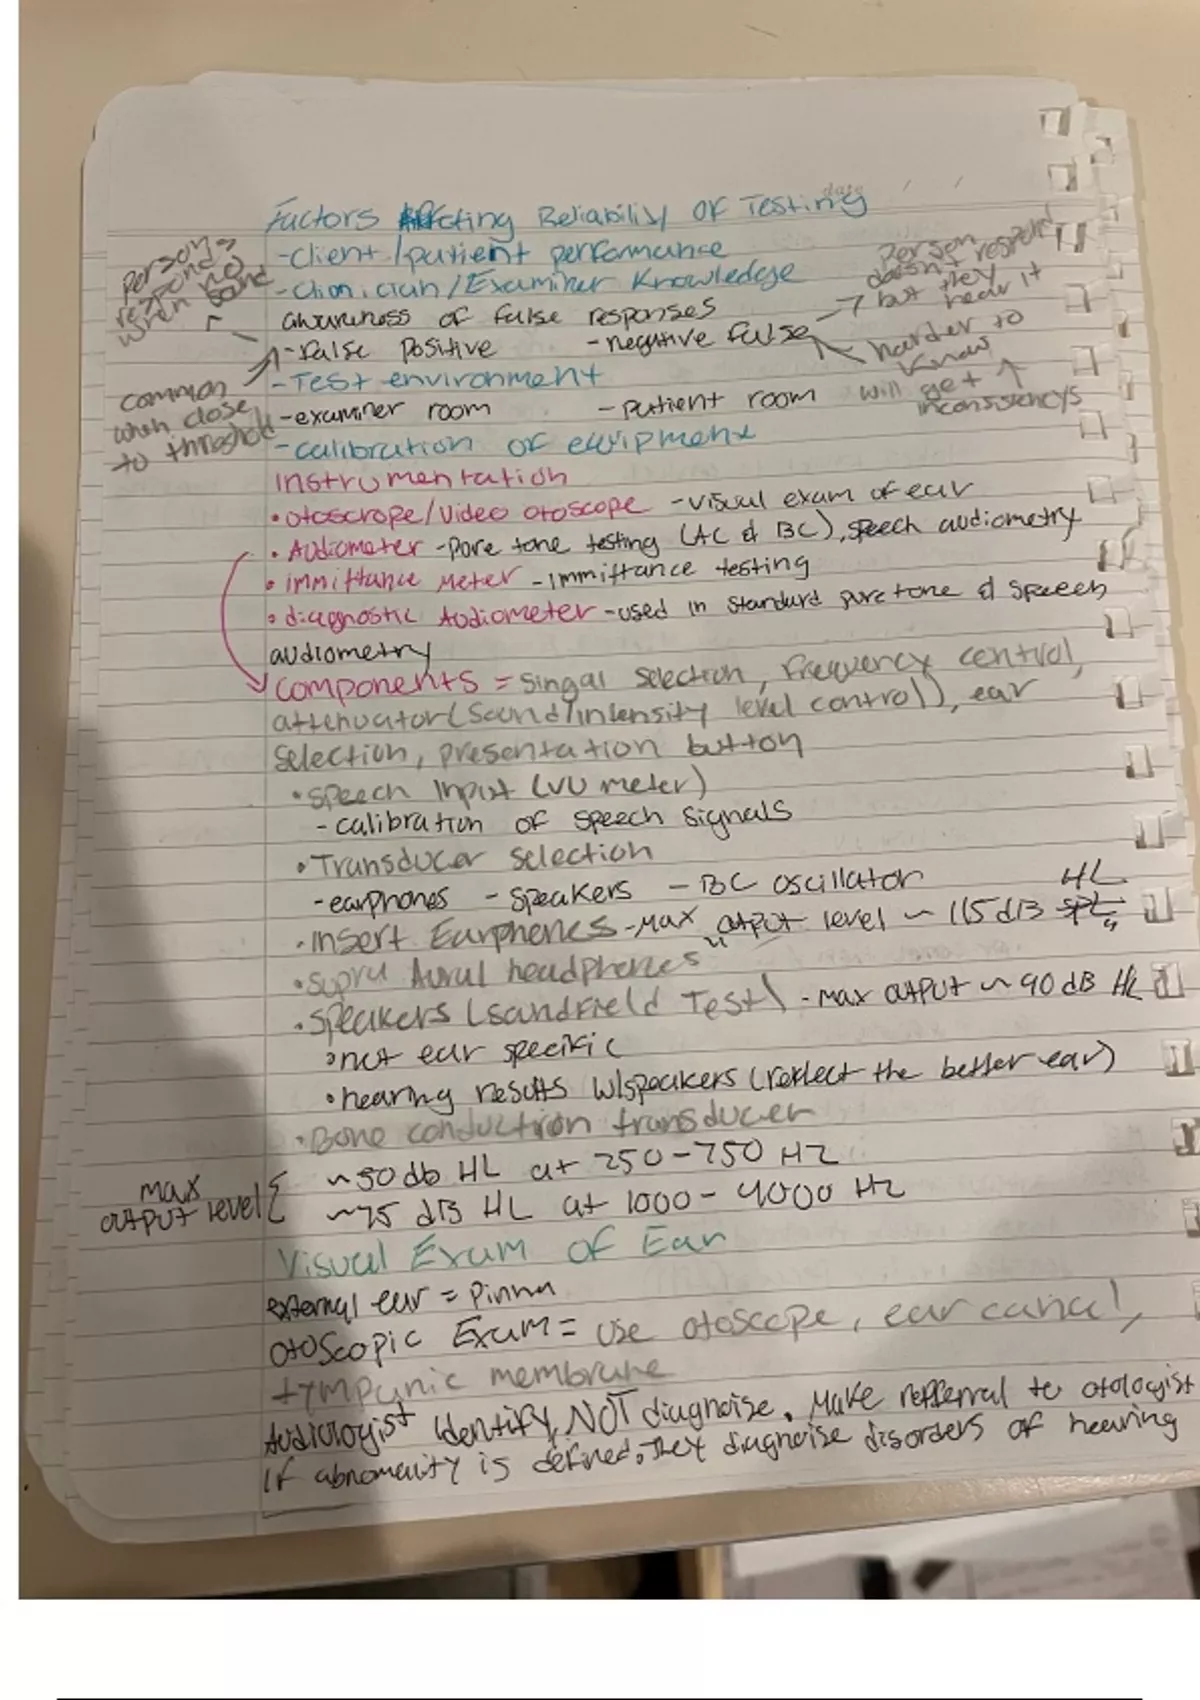 data
Factors Affcting Reliability of Testing
-client/patient performance
-Clinician/Examiner Knowledge
awareness of false responses
-False Positive -negative false
-Test environment
-examiner room -patient room
-calibration of equipment
person responds when no sound
common when close to threshold
Person doesn't respond but they hear it
harder to know
will get inconsistencys
Instrumentation
•otoscrope/video otoscope -visual exam of ear
•Audiometer -pore tone testing (AC & BC), speech audiometry
•immittance Meter -immittance testing
•diagnostic Audiometer -used in standard puretone & speech
audiometry
components = singal selection, frequency control,
attenuator(sound/intensity level control), ear
selection, presentation button
•speech Input (VU meter)
-calibration of speech signals
•Transducer selection
-earphones -speakers -BC oscillator
•insert Earphones -Max output level ~ 115 dB SPL HL
•supra Aural headphones " "
•speakers (Sandfield Test) -max output ~ 90 dB HL
•not ear specific
•hearing results w/speakers (reflect the better ear)
•Bone conduction transducer
max output level {
~50 db HL at 250-750 HZ
~75 dB HL at 1000-4000 Hz
Visual Exam of Ear
external ear = Pinna
otoscopic Exam= use otoscope, ear canal,
tympanic membrane
Audiologist identify, NOT diagnoise. Make refferral to otologist
if abnomality is defined, They diagnoise disorders of hearing